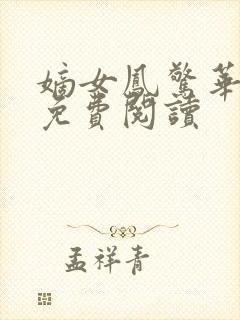 嫡女鳳驚華
免費閱讀
孟祥青